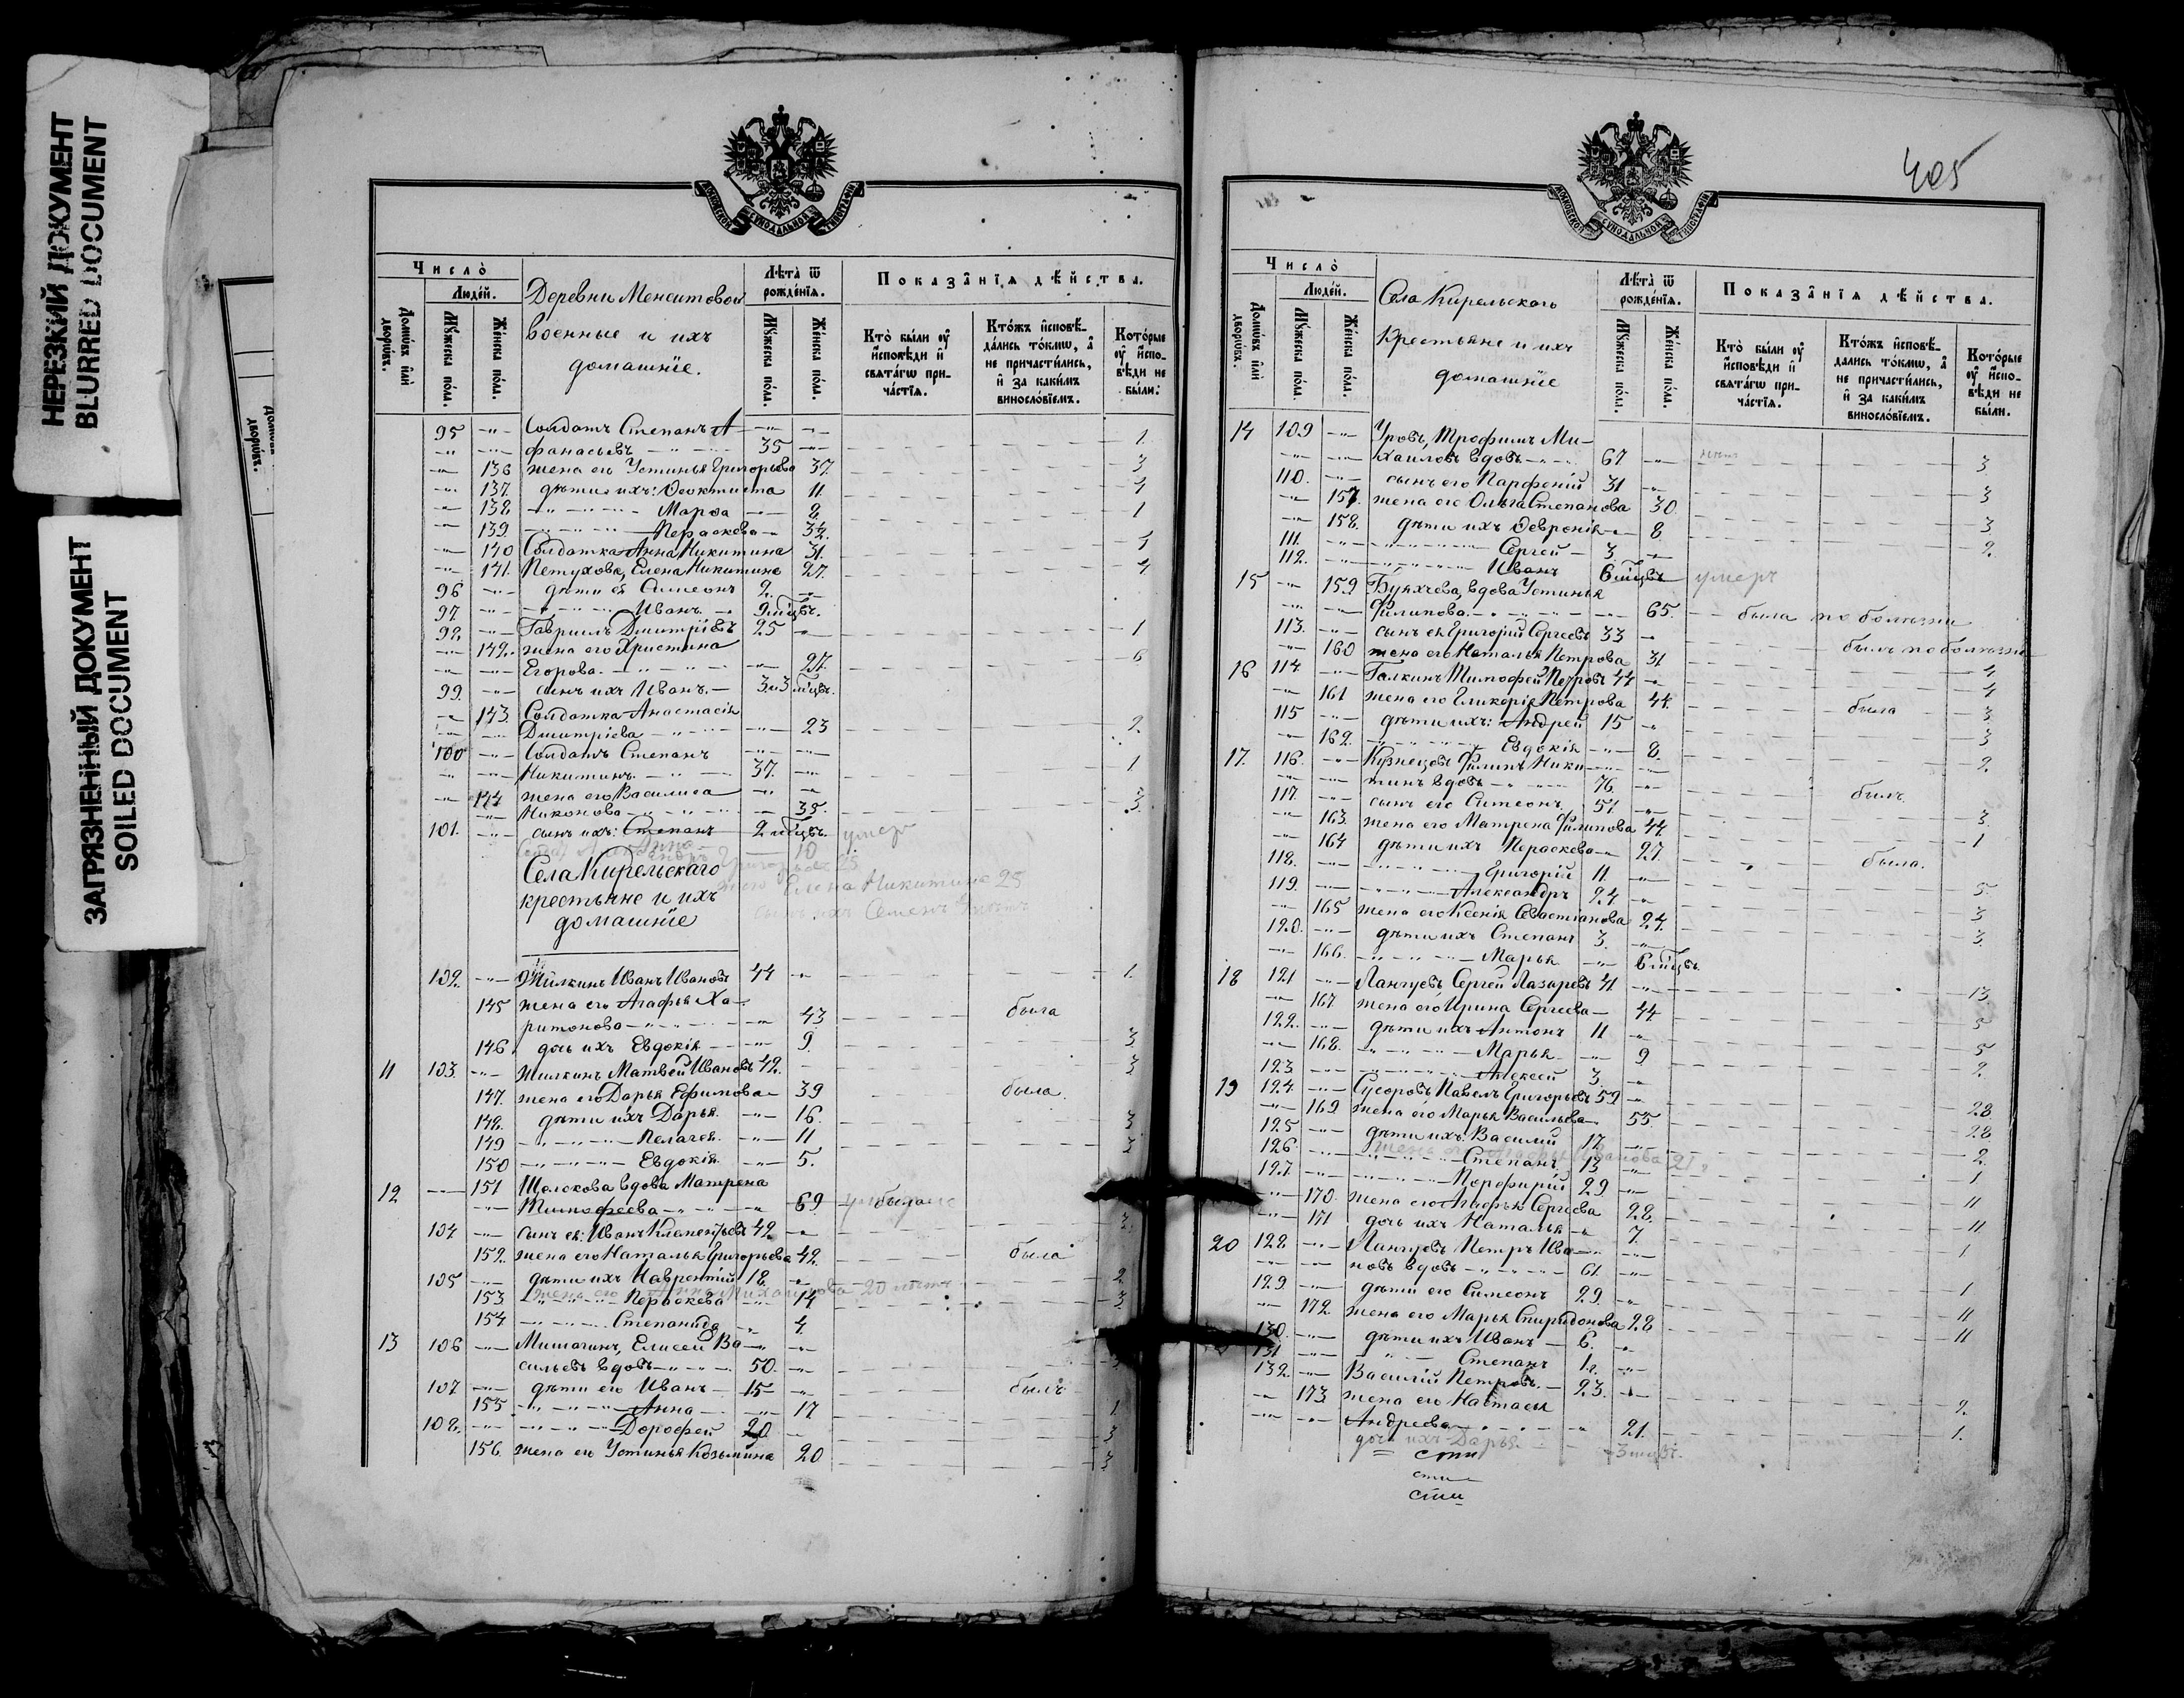 НЕРЕЗКИЙ ДОКУМЕНТ
BLURRED DOCUMENT
ЗАГРЯЗНЕННЫЙ ДОКУМЕНТ
SOILED DOCUMENT
МОСКОВСКОЙ СѴНОДАЛЬНОЙ ТИПОГРАФІИ
Число̀
Людей.
Домѡвъ и҆лѝ дворѡвъ.
Мꙋжеска пола.
Женска пола.
Деревни Менситовой
военные и ихъ
домашніе.
Лѣта̀ ѿ рожденїѧ.
Мꙋжеска пола.
Женска пола.
Показанїѧ дѣйства.
Кто̀ были оу҆ и҆сповѣди и҆ свѧтагѡ причастїѧ.
Ктожъ и҆сповѣдались токмѡ, а҆ не причастились, и҆ за какимъ винословїемъ.
Которые оу҆ и҆сповѣди не были.
95 Солдатъ Степанъ А-
фанасьевъ 35 1.
136 жена его Устинья Григорьева 37. 3
137. дѣти ихъ: Ѳеоктиста 11.
138. Марѳа 8. 1
139. Параскева 3½.
140 Солдатка Анна Никитина 31.
141. Петухова, Елена Никитина 27.
96 дѣти ея Симеонъ 2.
97. Иванъ 9 мѣцвъ.
98. Гавриилъ Дмитріевъ 25 1
142. жена его Христина
Егорова 27. 6
99. сынъ ихъ Иванъ. 3 и 3 мѣцвъ.
143. Солдатка Анастасія
Дмитріева 23 2.
100 Солдатъ Степанъ
Никитинъ. 37. 1
144 жена его Василиса
Никонова 35. 3.
101. сынъ ихъ: Степанъ 2 мѣцвъ. умеръ
Елена Никитина 25
Села Кирельскаго
крестьяне и ихъ
домашніе
10
102. Жилкинъ Иванъ Ивановъ 44 1.
145 жена его Агафья Ха-
ритонова 43 была
146 дочь ихъ Евдокія 9. 3
11 103. Жилкинъ Матвей Ивановъ 42. 3
147. жена его Дарья Ефимова 39 была.
148. дѣти ихъ Дарья 16. 3
149 Пелагея. 11 3
150 Евдокія 5.
12 151 Щолокова вдова Матрена
Тимофеева 69
104 сынъ ея: Иванъ Климентьевъ 42 3.
152. жена его Наталья Григорьева 42. была
105 дѣти ихъ Лаврентій 18. 2.
жена его Анна Михайлова 20 лѣтъ
153. Параскева 14 3
154 Степанида 4.
13 106 Мишагинъ, Елисей Ва-
сильевъ вдовъ 50. 3
107 дѣти его Иванъ 15 былъ
155 Анна 17. 1.
108. Дорофей 20 3
156. жена его Устинья Козьмина 20 3
405
МОСКОВСКОЙ СѴНОДАЛЬНОЙ ТИПОГРАФІИ
Число̀
Людей.
Домѡвъ и҆лѝ дворѡвъ.
Мꙋжеска пола.
Женска пола.
Села Кирельскаго
Крестьяне и ихъ
домашніе
Лѣта̀ ѿ рожденїѧ.
Мꙋжеска пола.
Женска пола.
Показанїѧ дѣйства.
Кто̀ были оу҆ и҆сповѣди и҆ свѧтагѡ причастїѧ.
Ктожъ и҆сповѣдались токмѡ, а҆ не причастились, и҆ за какимъ винословїемъ.
Которые оу҆ и҆сповѣди не были.
14 109 Уровъ, Трофимъ Ми-
хаиловъ вдовъ 67 3
110. сынъ его Парфеній 31 3
157. жена его Ольга Степанова 30. 3
158. дѣти ихъ Ѳевронія 8. 2.
111. Сергей 3.
112. Иванъ 6 мѣцвъ умеръ
15 159 Буяхчева, вдова Устинья
Филипова. 65. была по болезни
113. сынъ ея Григорій Сергеевъ 33 былъ по болезни
160 жена его Наталья Петрова 31 4
16 114 Галкинъ Тимофей Петровъ 44 4
161 жена его Гликерія Петрова 44. была 3
115 дѣти ихъ: Андрей 15 3
162. Евдокія 8. 2.
17. 116. Кузнецовъ Филипъ Ники-
тинъ вдовъ 76. былъ.
117. сынъ его Симеонъ 57. 3
163. жена его Матрена Филипова 44. 1
164 дѣти ихъ Параскева 27. была.
118. Григорій 11. 5
119. Александръ 24 3
165 жена его Ксенія Севастіанова 24. 3.
120. дѣти ихъ Степанъ 3.
166. Марья 6 мѣцвъ.
18 121 Лангуевъ Сергей Лазаревъ 41. 13.
167. жена его Ирина Сергеева 44 5
122. дѣти ихъ Антонъ 11 5
168. Марья 9 2.
123 Алексей 3.
19 124 Сусоровъ Павелъ Григорьевъ 59 28
169 жена его Марья Васильева 55. 28
125 дѣти ихъ: Василій 17. 2.
126. Степанъ 13 1
127. Порфирій 29. 11
170. жена его Агафья Сергеева 28. 11
171 дочь ихъ Наталья 7. 1
20 128 Лангуевъ Петръ Ива-
новъ вдовъ 61. 1
129. дѣти его Симеонъ 29. 11
172. жена его Марья Спиридонова 28 11
130. дѣти ихъ Иванъ 6.
131 Степанъ 1 г.
132. Василій Петровъ. 23. 2.
173 жена его Настасья
Андреева 21. 1.
дочь ихъ Дарья 3 мѣс.